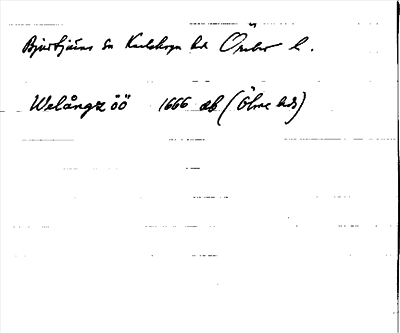 Bjurtjärns sn Karlskoga hd Örebro l.
Welångzöö 1666 db (Ölme hd)